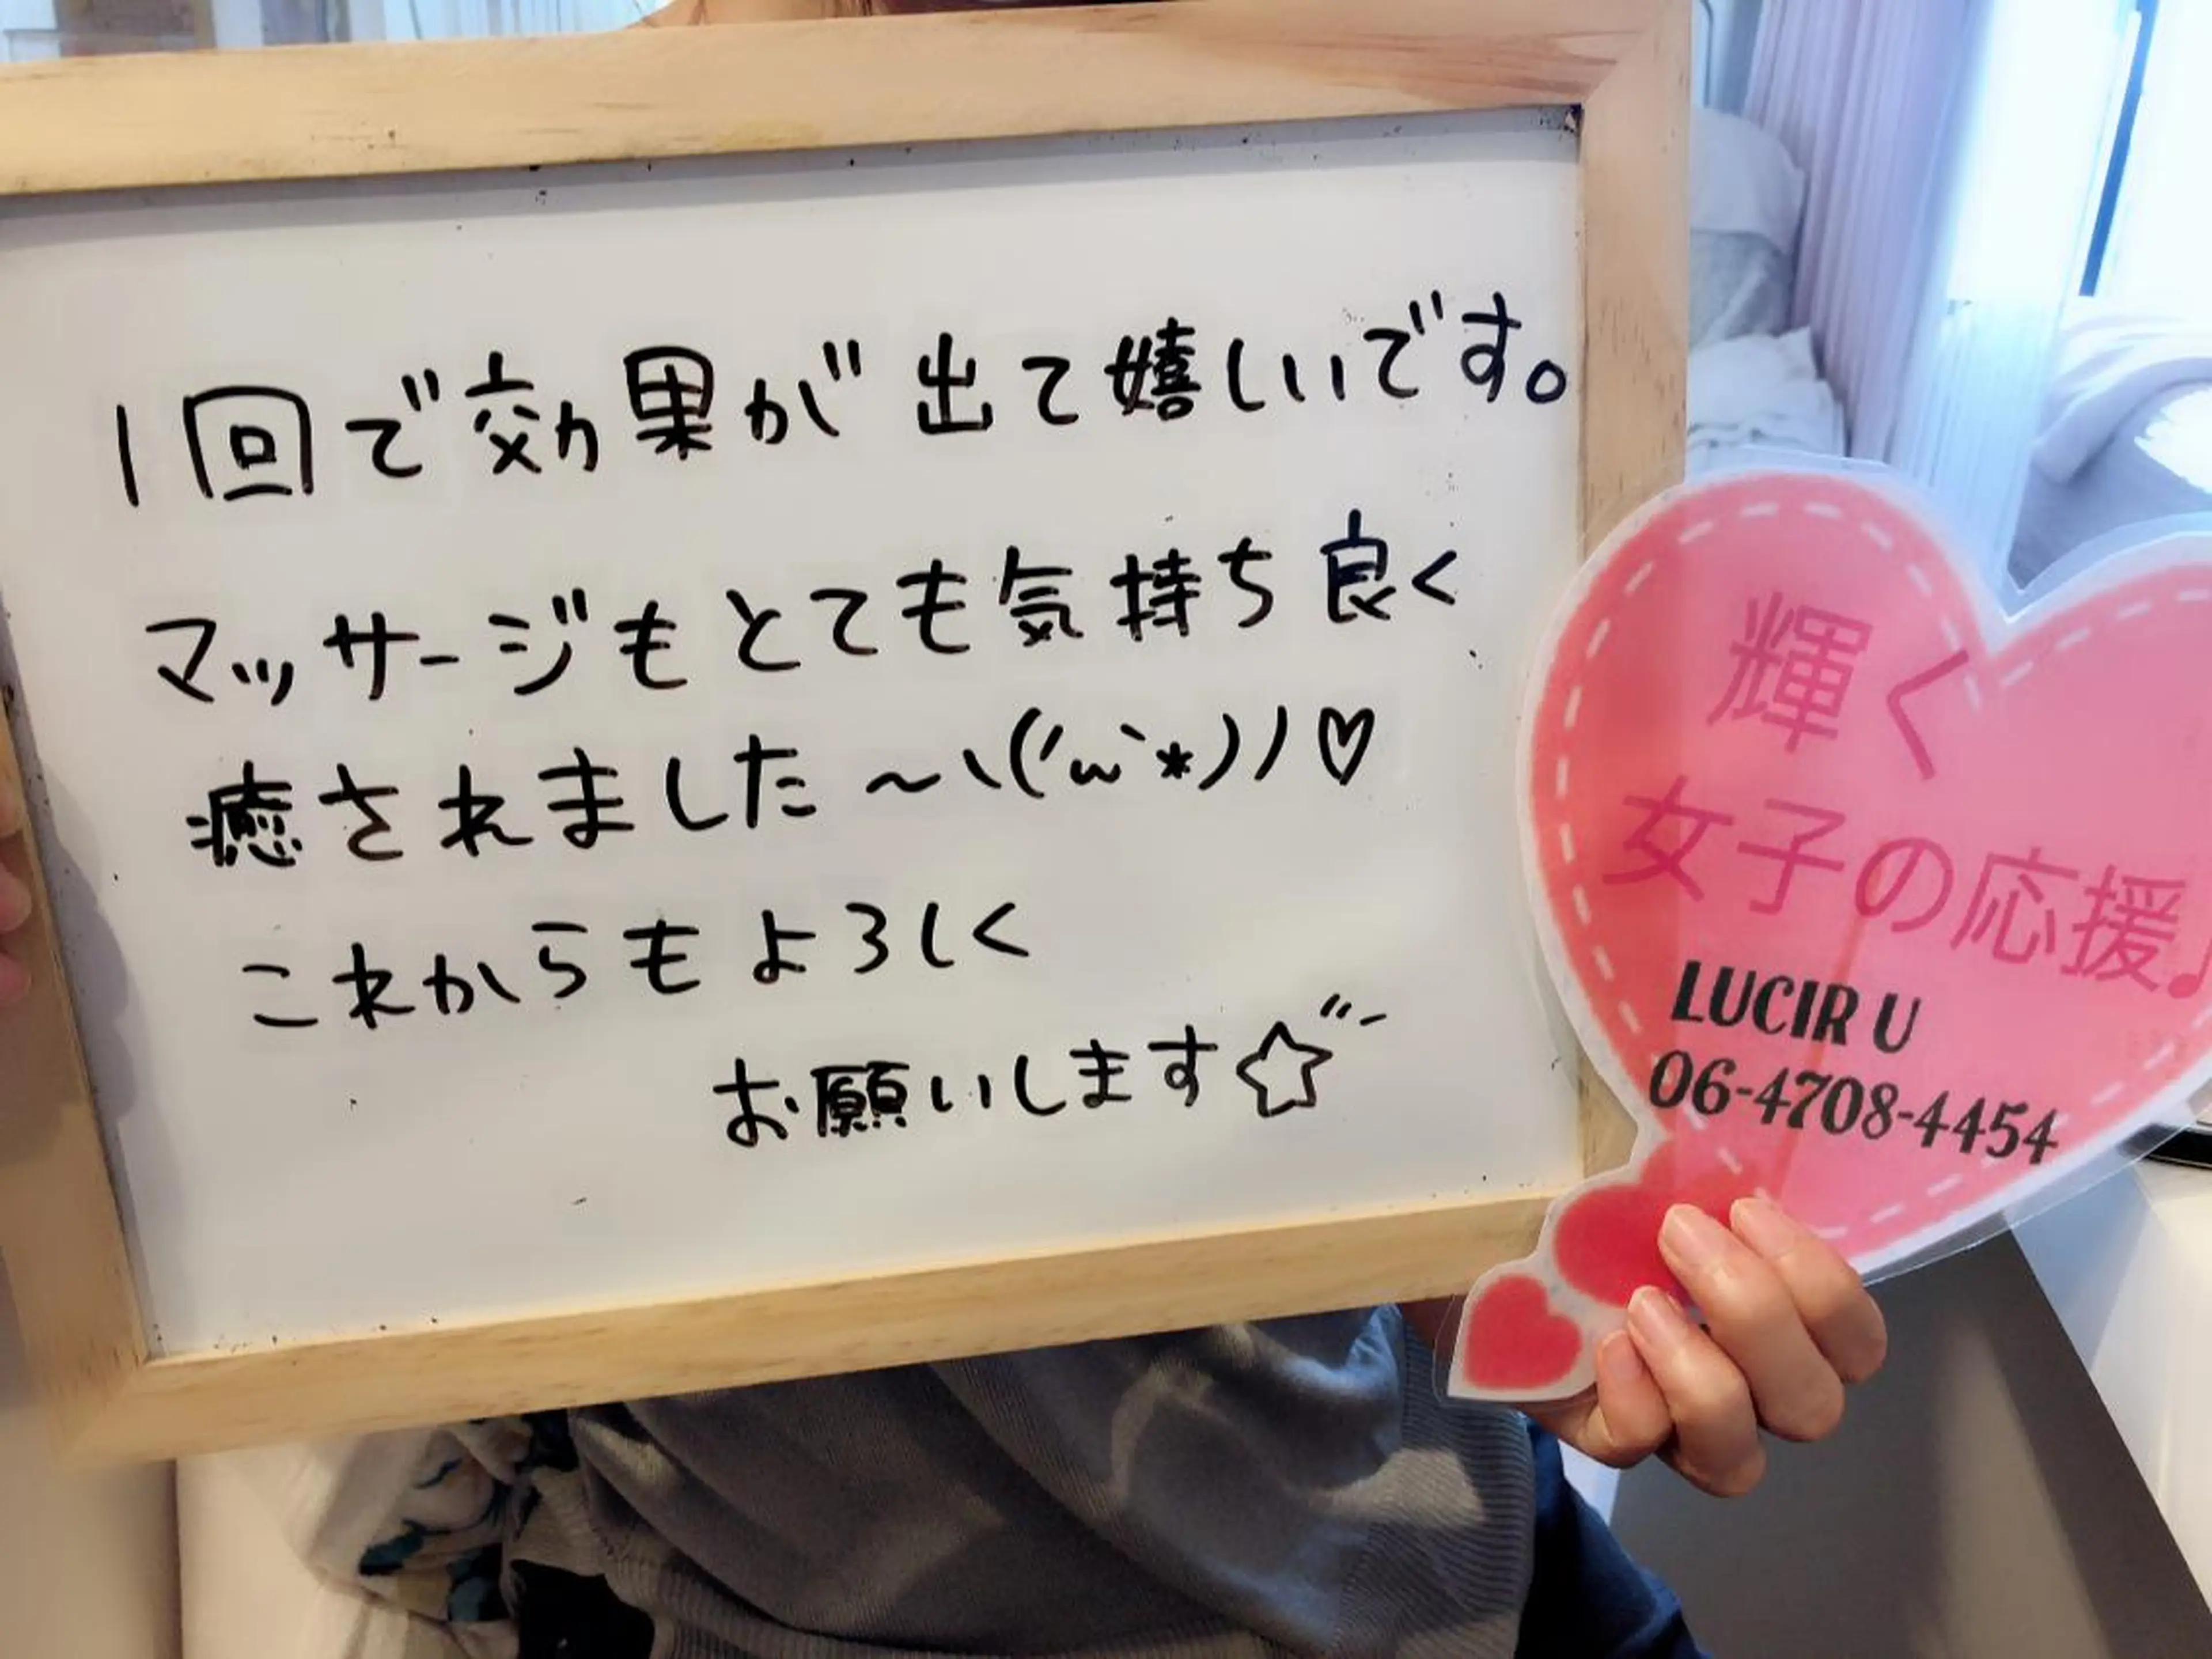 1回で効果が出て嬉しいです。
マッサージもとても気持ち良く
癒されました～ヽ(´ω`*)ノ♡
これからもよろしく
お願いします☆
輝く
女子の応援♪
LUCIR U
06-4708-4454